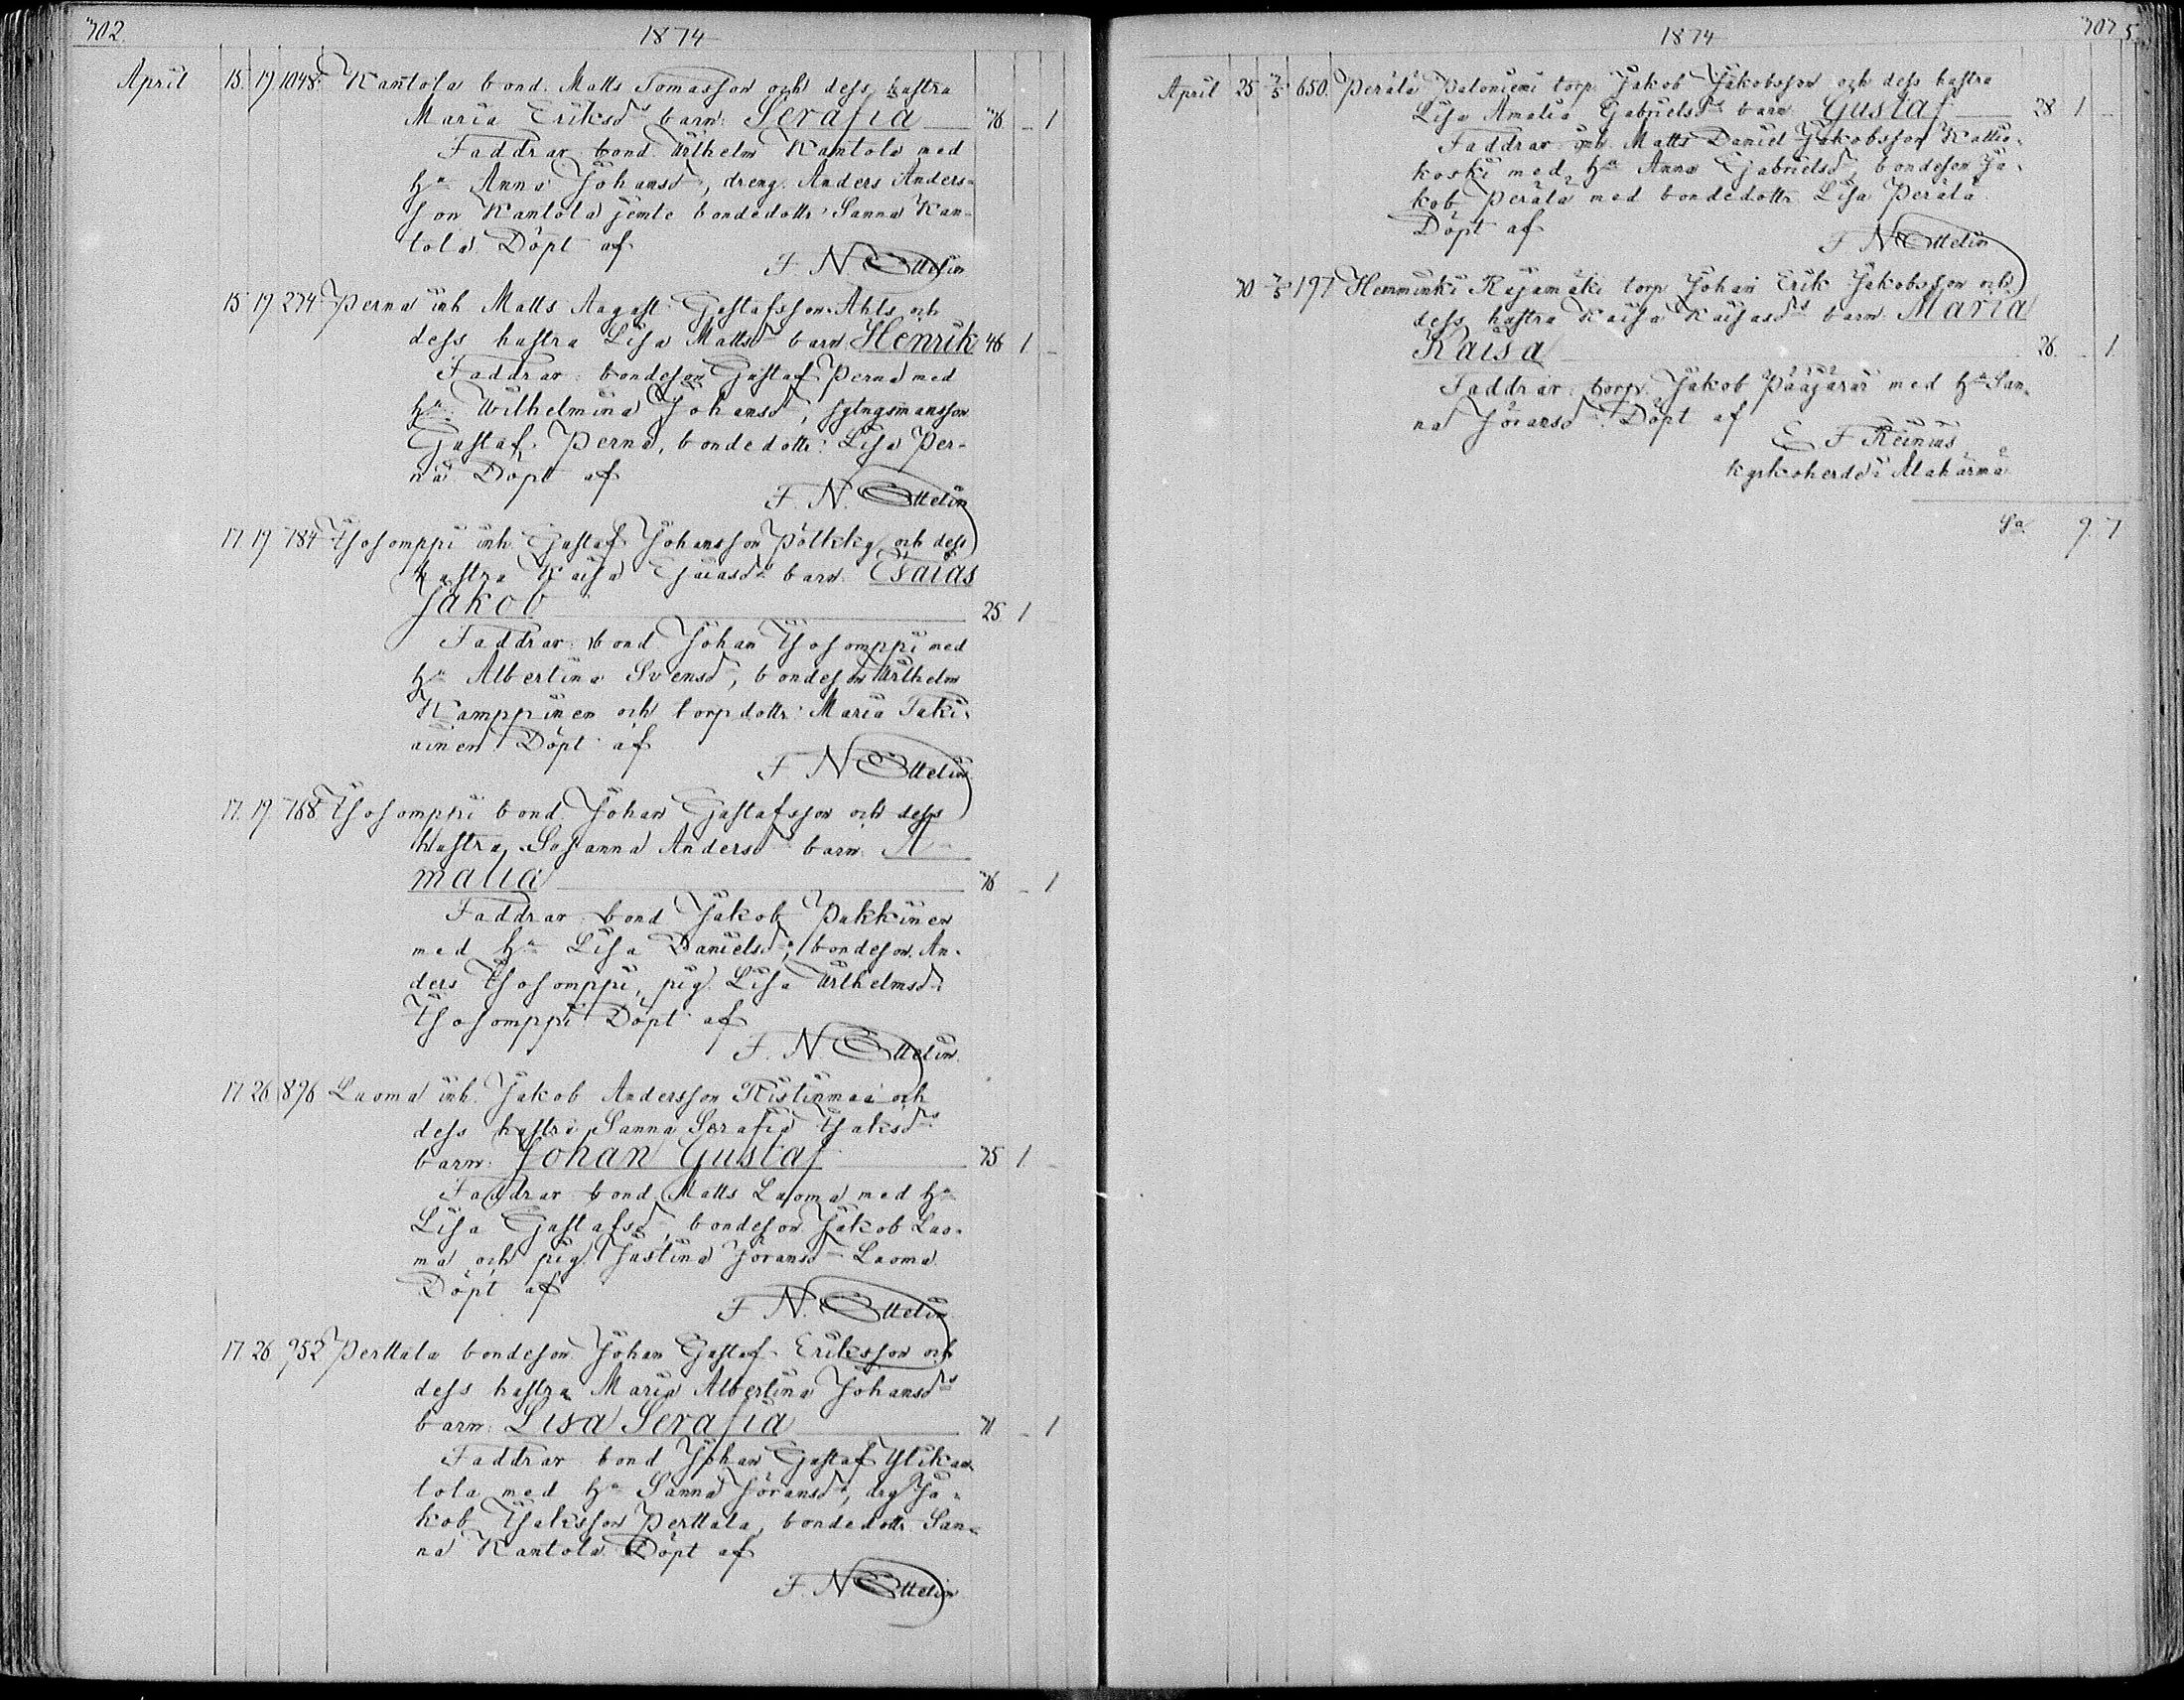 302.
1874
April 15. 19. 1048. Kantola bond. Matts Tomasson och dess hustru
Maria Eriksdr barn: Serafia 36 1
Faddrar: bond. Wilhelm Kantola med
hu Anna Johansd, dreng. Anders Anders-
son Kantola jemte bondedottr: Sanna Kan-
tola. Döpt af
F. N. Ottelin
15 19 274 Perna inh Matts August Gustafsson Ahls och
dess hustru Lisa Mattsdr barn Henrik 46 1
Faddrar: bondeson Gustaf Perna med
hu Wilhelmina Johansd,
Gustaf Perna, bondedottr: Lisa Per-
na Döpt af
F. N. Ottelin
17 19 784 Isosomppi inh Gustaf Johansson Pölkky och dess
hustru Kaisa Esaiasdr barn Esaias
Jakob 25 1
Faddrar: bond Johan Isosomppi med
hu Albertina Svensd, bondeson Wilhelm
Kamppinen och torpdottr: Maria Taki-
ainen Döpt af
F N Ottelin
17. 19. 768 Isosomppi bond. Johan Gustafsson och dess
hustru Susanna Andersd barn: A-
malia 36 1
Faddrar: bond Jakob Pukkinen
med hu Lisa Danielsd, bondeson. An-
ders Isosomppi, pig. Lisa Wilhelmsd
Isosomppi Döpt af
F. N. Ottelin.
17 26 896 Luoma inh. Jakob Andersson Ristinmaa och
dess hustru Sanna Serafia Isaksdr
barn: Johan Gustaf 35 1
Faddrar bond Matts Luoma med hu
Lisa Gustafsd, bondeson Jakob Luo-
ma och pig. Justina Göransd Luoma
Döpt af
F N. Ottelin
17. 26 952 Perttala bondeson Johan Gustaf Eriksson och
dess hustru Maria Albertina Johansdr
barn: Lisa Serafia 31 1
Faddrar bond Johan Gustaf Ylikan-
tola med hu Sanna Göransd, drg Ja-
kob Isaksson Perttala, bondedottr San-
na Kantola Döpt af
F. N Ottelin
1874
303
April 25 3/5 650. Perälä Paloniemi torp Jakob Jakobsson och dess hustru
Lisa Amalia Gabrielsdr barn Gustaf 28 1
Faddrar inh. Matts Daniel Jakobsson Kallio-
koski med hu Anna Gabrielsd, bondeson Ja-
kob Perälä med bondedottr Lisa Perälä
Döpt af
F N Ottelin
30 3/5 197 Hemminki Rajamäki torp Johan Erik Jakobsson och
dess hustru Kaisa barn Maria
Kaisa 26. 1.
Faddrar: torp. Jakob Pääjärvi med hu San-
na Göransd. Döpt af
E F Reinius
kyrkoherde i Alahärmä
Sa 9. 7